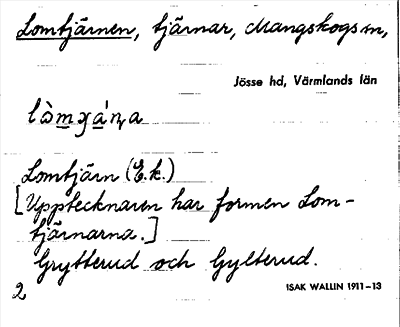 Lomtjärnen, tjärnar, Mangskogs sn,
Jösse hd, Värmlands län
Lomtjärn (E.k.)
[Upptecknaren har formen Lom-
tjärnarna.]
Grytterud och Gylterud.
2
ISAK WALLIN 1911-13